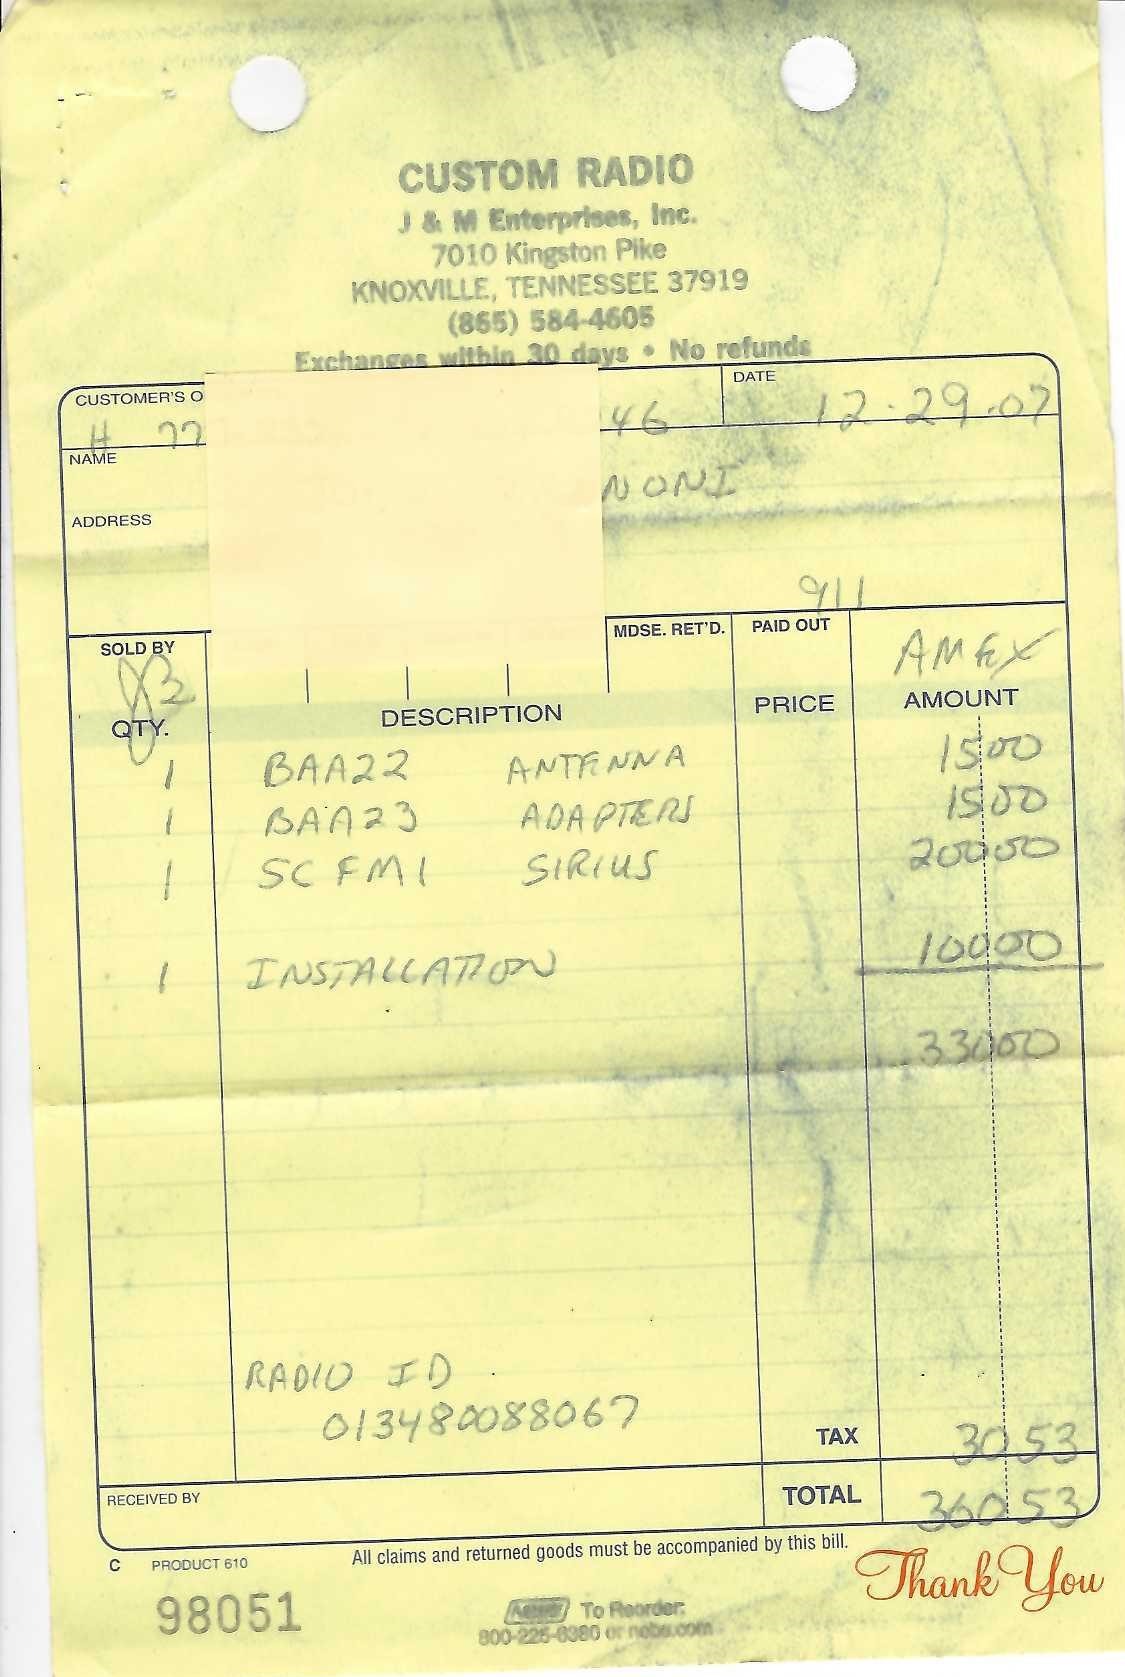 CUSTOM RADIO
J & M Enterprises, Inc.
7010 Kingston Pike
KNOXVILLE, TENNESSEE 37919
(865) 584-4605
Exchanges within 30 days • No refunds
CUSTOMER'S O
H 77
46
DATE
12-29-07
NAME
NONI
ADDRESS
911
SOLD BY
MDSE. RET'D.
PAID OUT
AMEX
QTY.
DESCRIPTION
PRICE
AMOUNT
1 BAA22 ANTENNA 15 00
1 BAA23 ADAPTERS 15 00
1 SCFM1 SIRIUS 200 00
1 INSTALLATION 100 00
330 00
RADIO ID
013480088067
TAX 30 53
RECEIVED BY
TOTAL 360 53
C PRODUCT 610
All claims and returned goods must be accompanied by this bill.
Thank You
98051
To Reorder:
800-225-6380 or nebs.com